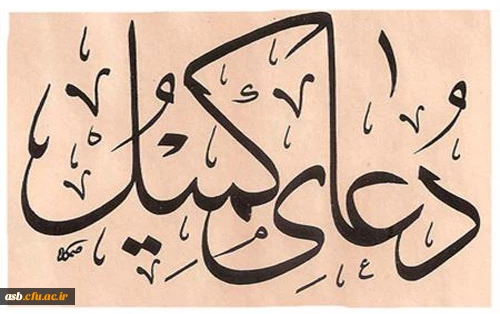 دُعای کُمِیْل
asb.cfu.ac.ir